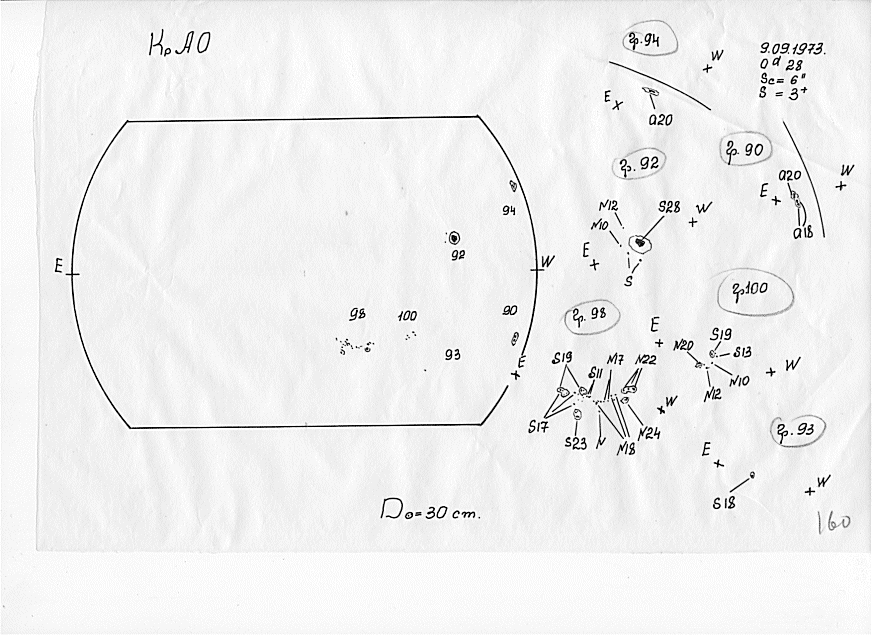 КрАО
9.09.1973.
0ᵈ 28
Sc = 6"
S = 3+
гр. 94
W
E
a20
гр. 90
W
a20
E
a18
гр. 92
N12
S28
W
N10
E
S
94
92
E
W
98
100
90
93
E
гр. 98
S19
S11
N7
N22
W
S17
S23
N
N18
N24
гр100
E
S19
N20
S13
W
N10
N12
гр. 93
E
W
S18
D⊙ = 30 cm.
160